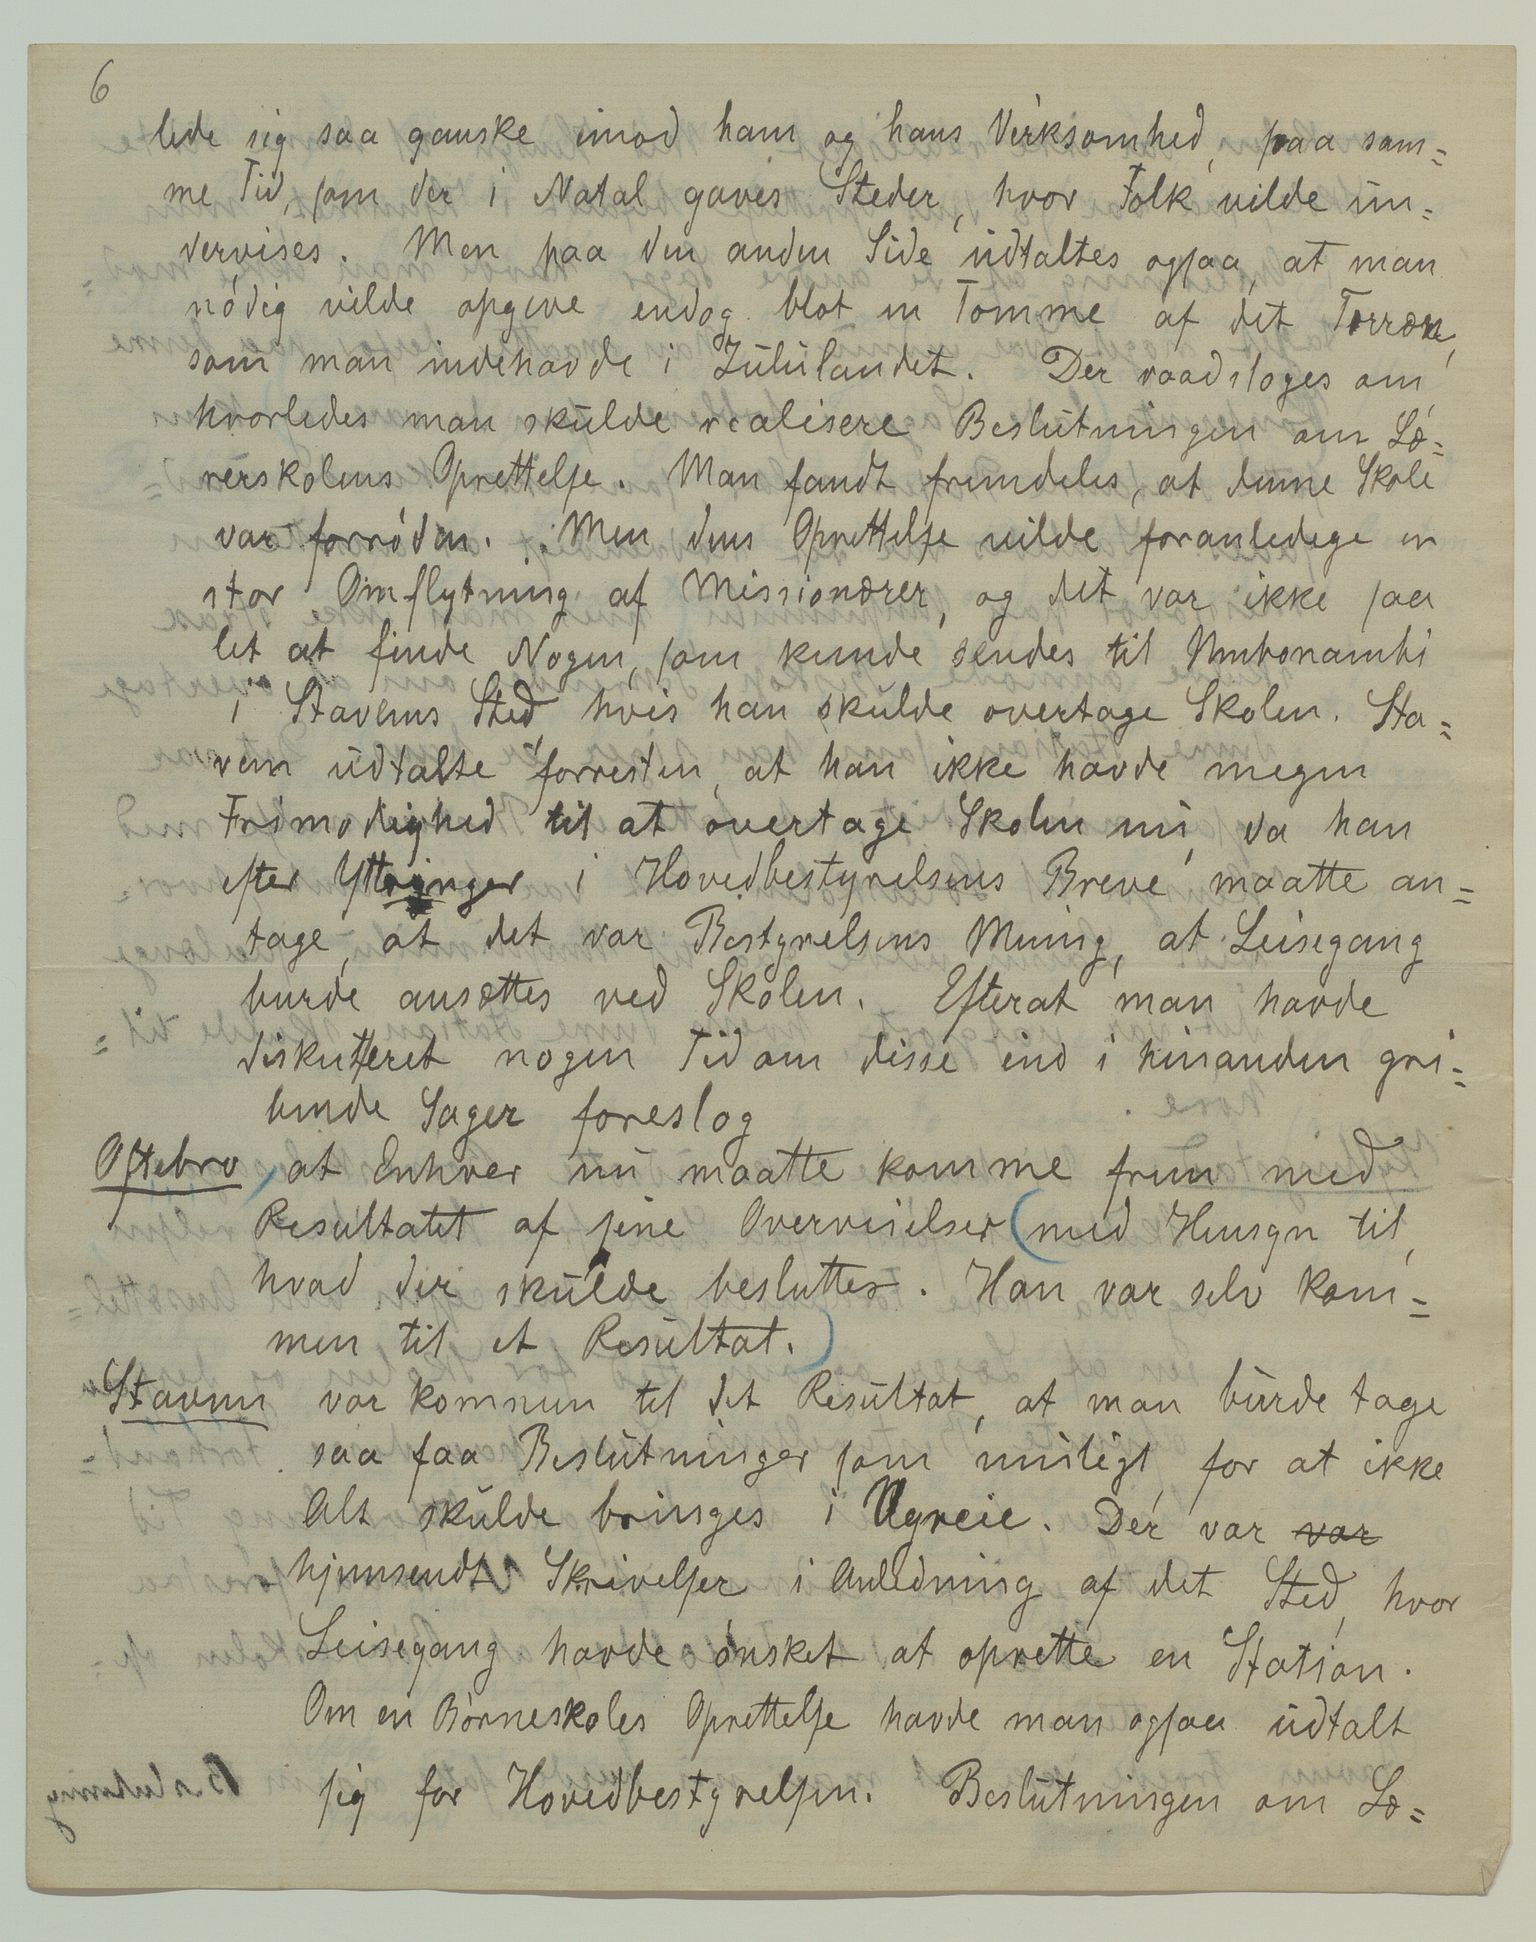 6
lede sig saa ganske imod ham og hans Virksomhed, paa sam=
me Tid, som der i Natal gaves Steder, hvor Folk vilde un=
dervises. Men paa den anden Side udtaltes ogsaa, at man
nødig vilde opgive endog blot en Tomme af det Terræn,
som man indehavde i Zululandet. Der raadsloges om
hvorledes man skulde realisere Beslutningen om Læ=
rerskolens Oprettelse. Man fandt fremdeles, at denne Skole
var fornøden. Men dens Oprettelse vilde foranledige en
stor Omflytning af Missionærer, og det var ikke saa
let at finde Nogen, som kunde sendes til Umbonambi
i Stavems Sted, hvis han skulde overtage Skolen. Sta=
vem udtalte forresten, at han ikke havde megen
Frimodighed til at overtage Skolen nu, da han
efter Yttringer i Hovedbestyrelsens Breve maatte an=
tage, at det var Bestyrelsens Mening, at Leisegang
burde ansættes ved Skolen. Efterat man havde
diskutteret nogen Tid om disse ind i hinanden gri=
bende Sager foreslog
Oftebro, at Enhver nu maatte komme frem med
Resultatet af sine Overveielser (med Hensyn til,
hvad der skulde besluttes. Han var selv kom=
men til et Resultat.)
Stavem var kommen til det Resultat, at man burde tage
saa faa Beslutninger som muligt, for at ikke
Alt skulde bringes i Ugreie. Der var var
hjemsendt Skrivelser i Anledning af det Sted, hvor
Leisegang havde ønsket at oprette en Station.
Om en Børneskoles Oprettelse havde man ogsaa udtalt
sig for Hovedbestyrelsen. Beslutningen om Læ=
Beslutning